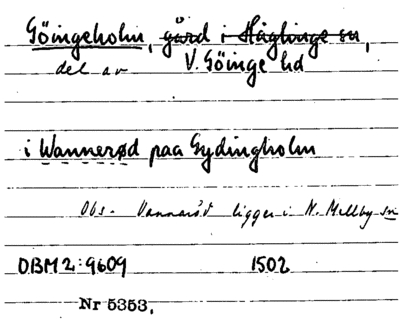 Göingeholm, gård i Häglinge sn,
del av V. Göinge hd
i Wannerød paa Gydingholm
Obs. Vannaröd ligger i N. Mellby sn
DBM 2:9609 1502
Nr 5353,